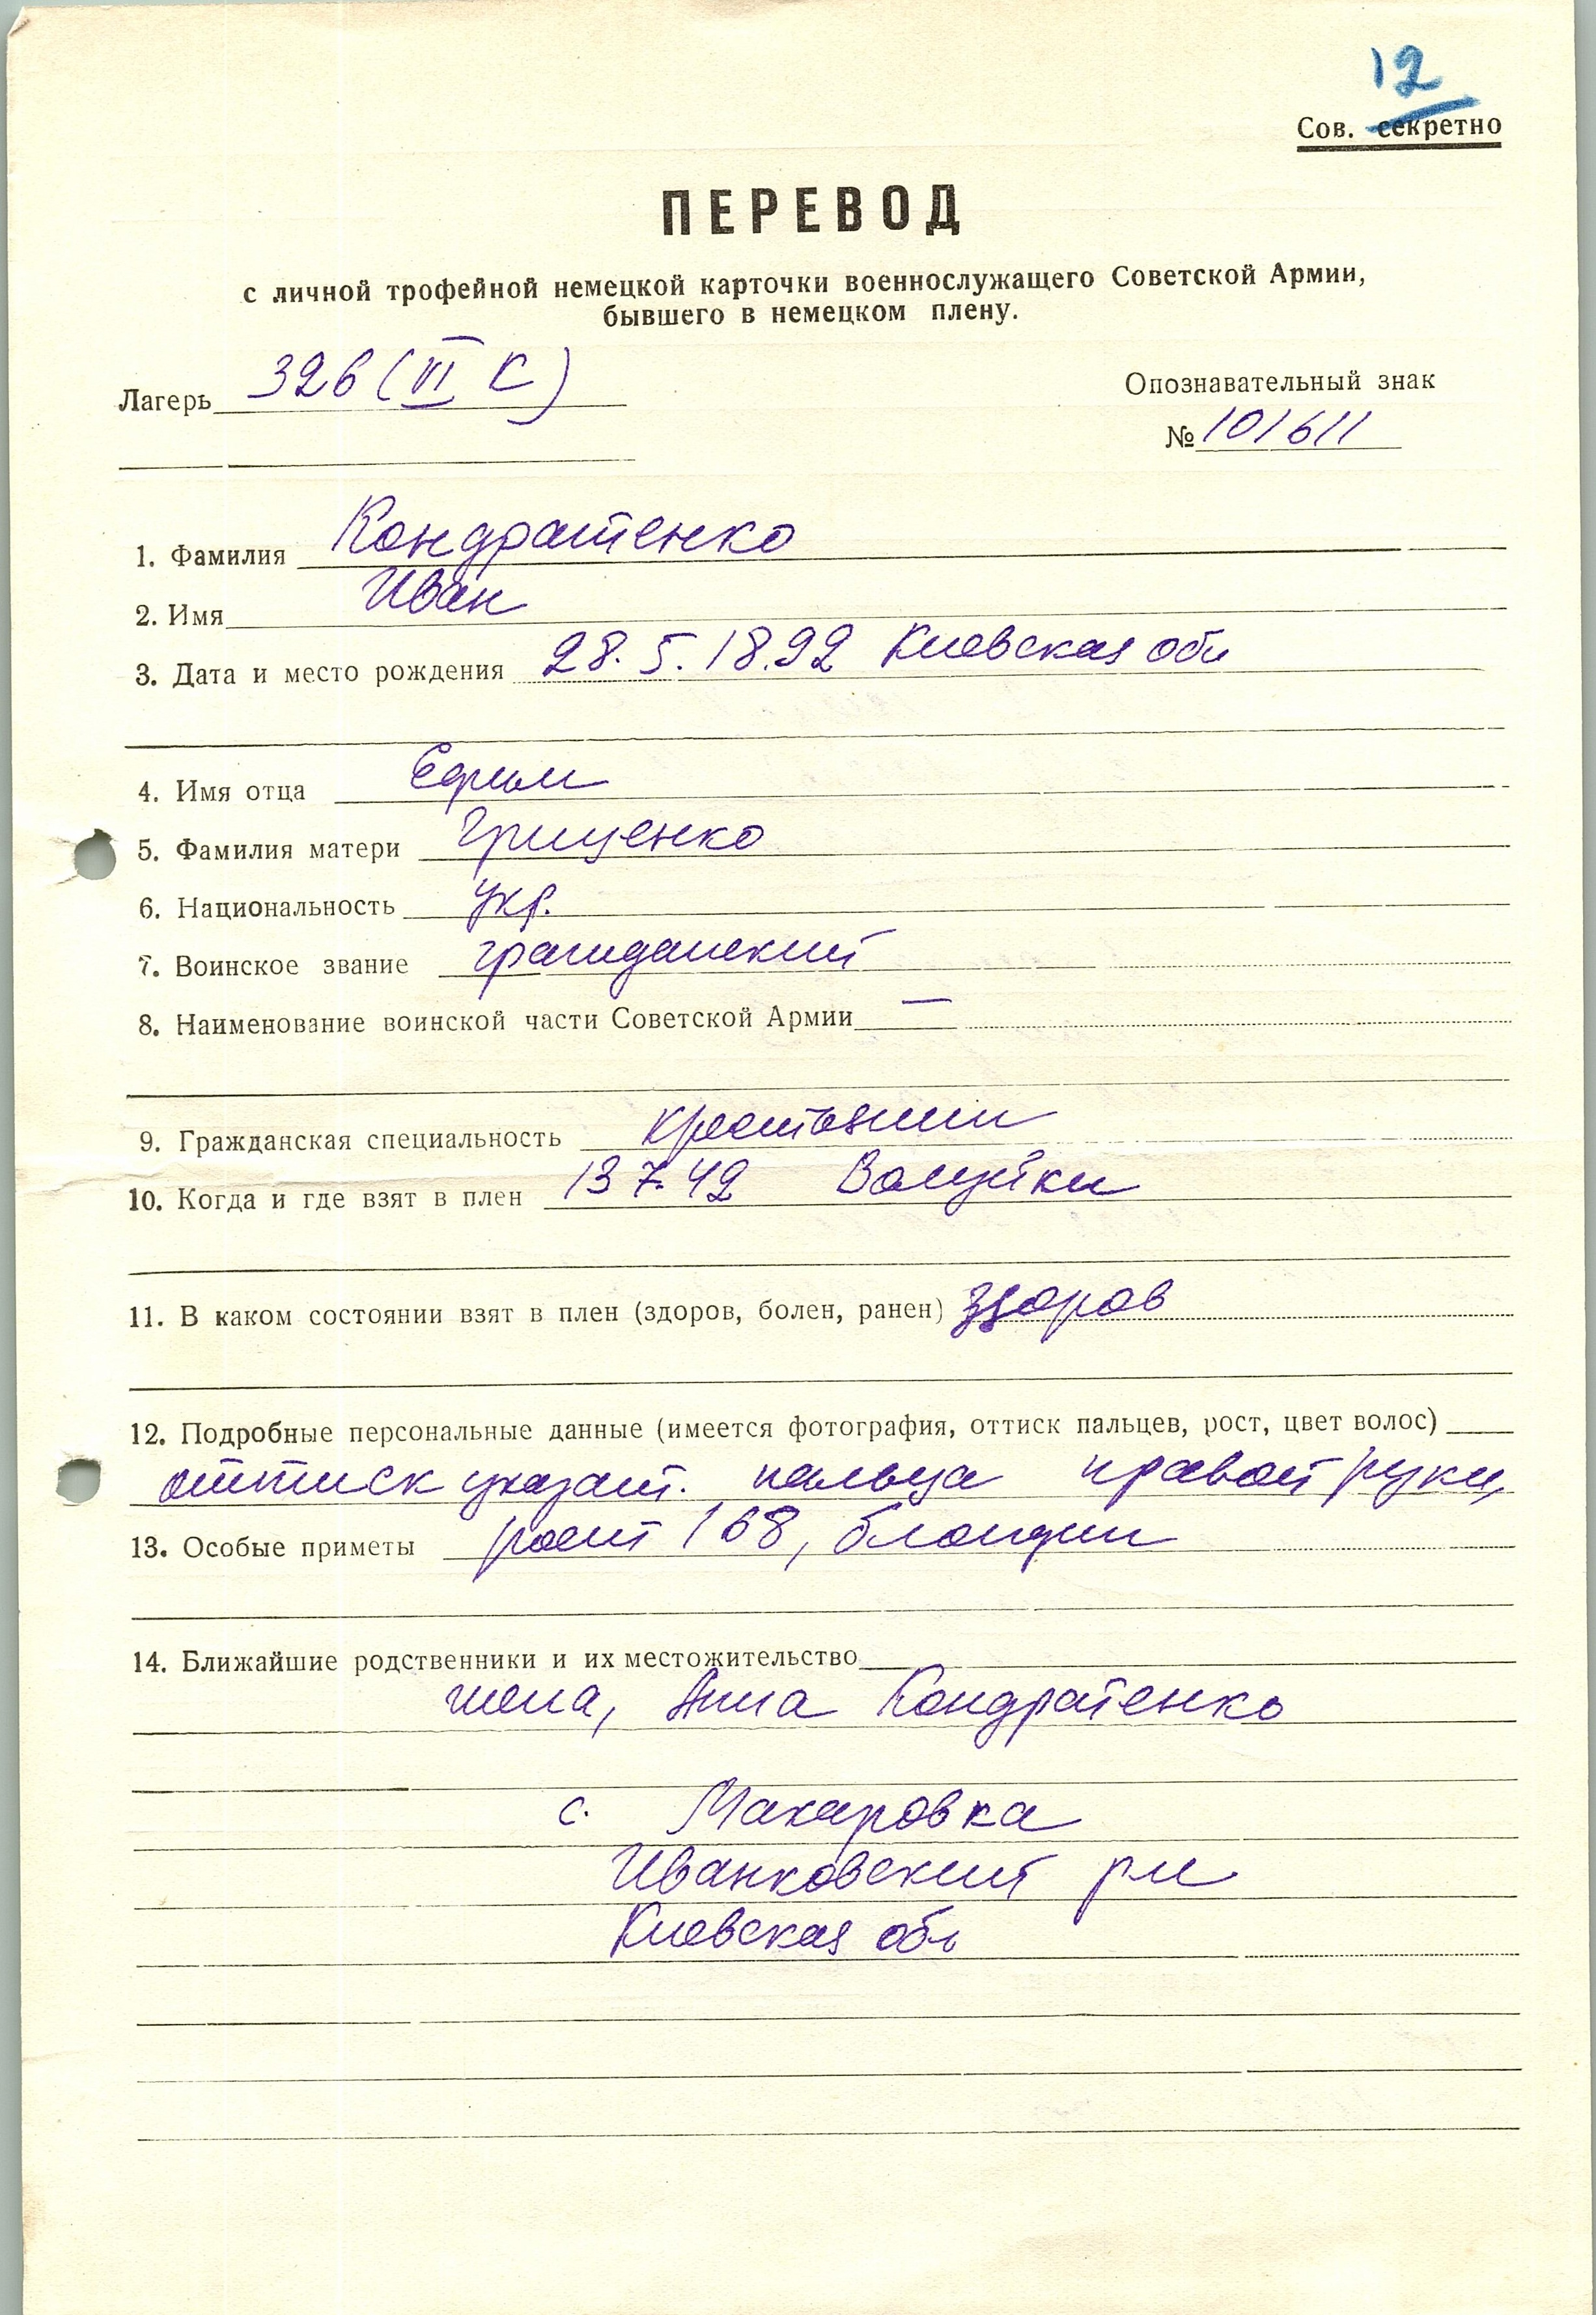 12
Сов. секретно
ПЕРЕВОД
с личной трофейной немецкой карточки военнослужащего Советской Армии,
бывшего в немецком плену.
Лагерь 326 (VI К)
Опознавательный знак
№ 101611
1. Фамилия Кондратенко
2. Имя Иван
3. Дата и место рождения 28.5.1892 Киевская обл
4. Имя отца Ефим
5. Фамилия матери Грищенко
6. Национальность укр.
7. Воинское звание гражданский
8. Наименование воинской части Советской Армии —
9. Гражданская специальность крестьянин
10. Когда и где взят в плен 13.7.42 Валуйки
11. В каком состоянии взят в плен (здоров, болен, ранен) здоров
12. Подробные персональные данные (имеется фотография, оттиск пальцев, рост, цвет волос)
оттиск указат. пальца правой руки,
13. Особые приметы рост 168, блондин
14. Ближайшие родственники и их местожительство
жена, Анна Кондратенко
с. Макаровка
Иванковский рн
Киевская обл